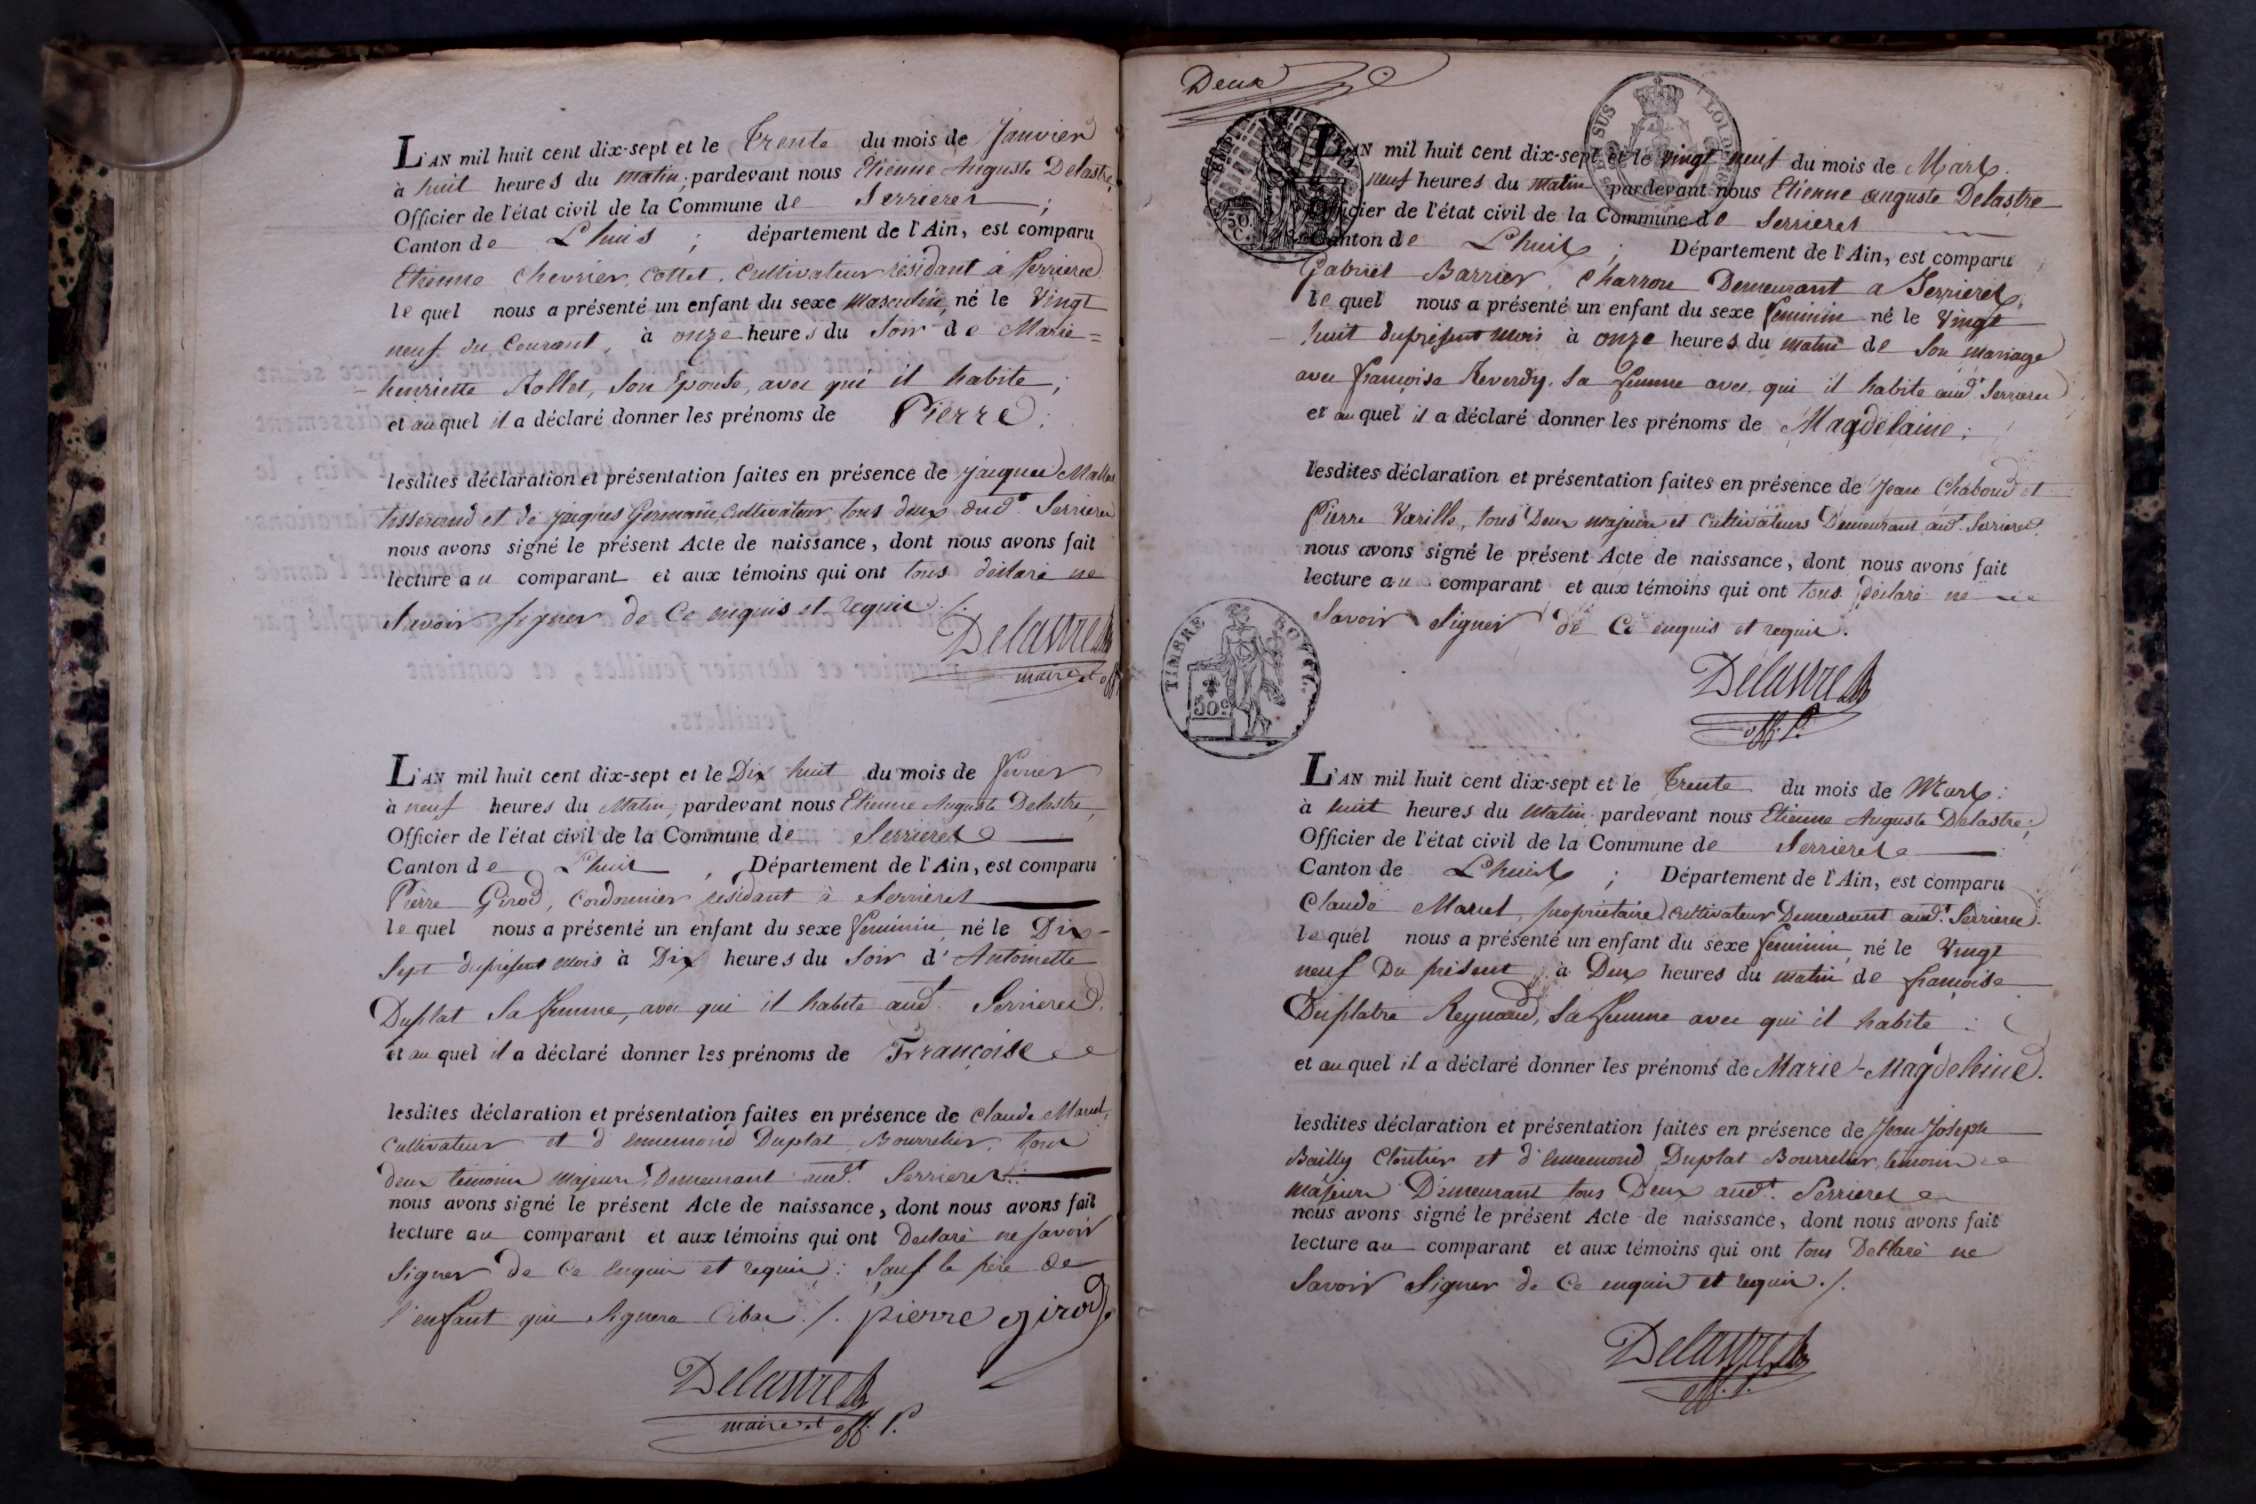 L'AN mil huit cent dix-sept et le Trente du mois de Janvier
à huit heures du matin, pardevant nous Etienne Auguste Delastre,
Officier de l'état civil de la Commune de Serrieres ;
Canton de Lhuis ; département de l'Ain, est comparu
Etienne Chevrier Cottet. Cultivateur résidant à Serrieres
lequel nous a présenté un enfant du sexe masculin, né le Vingt
neuf du Courant, à onze heures du Soir de Marie=
henriette Rollet, Son Epouse, avec qui il habite ;
et auquel il a déclaré donner les prénoms de Pierre :
lesdites déclaration et présentation faites en présence de jacques
tisserand et de jacques Germain, Cultivateur tous deux dud.t Serrieres
nous avons signé le présent Acte de naissance, dont nous avons fait
lecture au comparant et aux témoins qui ont tous déclaré ne
Savoir signer de Ce enquis et requis ./.
Delastre
maire et off
L'AN mil huit cent dix-sept et le Dix huit du mois de fevrier
à neuf heures du Matin, pardevant nous Etienne Auguste Delastre,
Officier de l'état civil de la Commune de Serrieres
Canton de Lhuis , Département de l'Ain, est comparu
Pierre Girod, Cordonnier résidant à Serrieres
lequel nous a présenté un enfant du sexe feminin, né le Dix-
Sept du présent mois à Dix heures du Soir d'Antoinette
Duplat Sa femme, avec qui il habite aud.t Serrieres.
et auquel il a déclaré donner les prénoms de Françoise
lesdites déclaration et présentation faites en présence de Claude Maruel,
Cultivateur et d'ennemond Duplat Bourrelier, tous
deux temoins majeurs Demeurant aud.t Serrieres.
nous avons signé le présent Acte de naissance, dont nous avons fait
lecture au comparant et aux témoins qui ont Declaré ne savoir
Signer de Ce enquis et requis : Sauf le père de
l'enfant qui Signera /. pierre girod
Delastre
maire et off. P.
Deux
L'AN mil huit cent dix-sept et le vingt neuf du mois de Mars.
neuf heures du matin pardevant nous Etienne auguste Delastre
Officier de l'état civil de la Commune de Serrieres
Canton de Lhuis ; Département de l'Ain, est comparu
Gabriel Barrier, Charron Demeurant a Serrieres,
lequel nous a présenté un enfant du sexe feminin né le Vingt
huit du présent mois à onze heures du matin de Son mariage
avec françoise Reverdy. Sa femme avec qui il habite aud.t Serrieres
et auquel il a déclaré donner les prénoms de Magdelaine ;
lesdites déclaration et présentation faites en présence de Jean Chaboud et
Pierre Varille, tous Deux majeurs et Cultivateurs Demeurant aud.t Serrieres.
nous avons signé le présent Acte de naissance, dont nous avons fait
lecture au comparant et aux témoins qui ont tous déclaré ne
Savoir Signer de Ce enquis et requis.
TIMBRE ROYAL
50 c
Delastre
off. P.
L'AN mil huit cent dix-sept et le Trente du mois de Mars :
à huit heures du Matin pardevant nous Etienne Auguste Delastre,
Officier de l'état civil de la Commune de Serrieres
Canton de Lhuis ; Département de l'Ain, est comparu
Claude Maruel, propriétaire Cultivateur Demeurant aud.t Serrieres.
lequel nous a présenté un enfant du sexe feminin, né le Vingt
neuf Du présent, à Deux heures du matin de françoise
Duplatre Reynaud, Sa femme avec qui il habite :
et auquel il a déclaré donner les prénoms de Marie-Magdelaine.
lesdites déclaration et présentation faites en présence de Jean Joseph
Bailly Cloutier et d'ennemond Duplat Bourrelier, temoins
majeurs Demeurant tous Deux aud.t Serrieres
nous avons signé le présent Acte de naissance, dont nous avons fait
lecture au comparant et aux témoins qui ont tous Declaré ne
Savoir Signer de Ce enquis et requis ./.
Delastre
off. P.